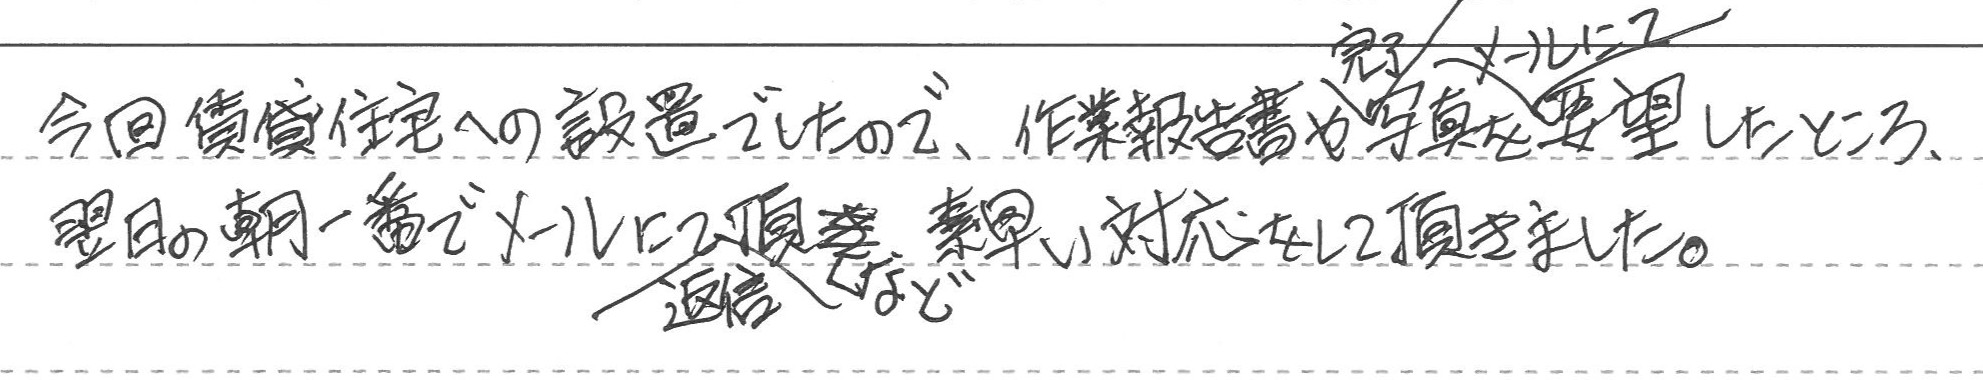 今回賃貸住宅への設置でしたので、作業報告書や完了写真をメールにて要望したところ、
翌日の朝一番でメールにて返信頂くなど素早い対応をして頂きました。